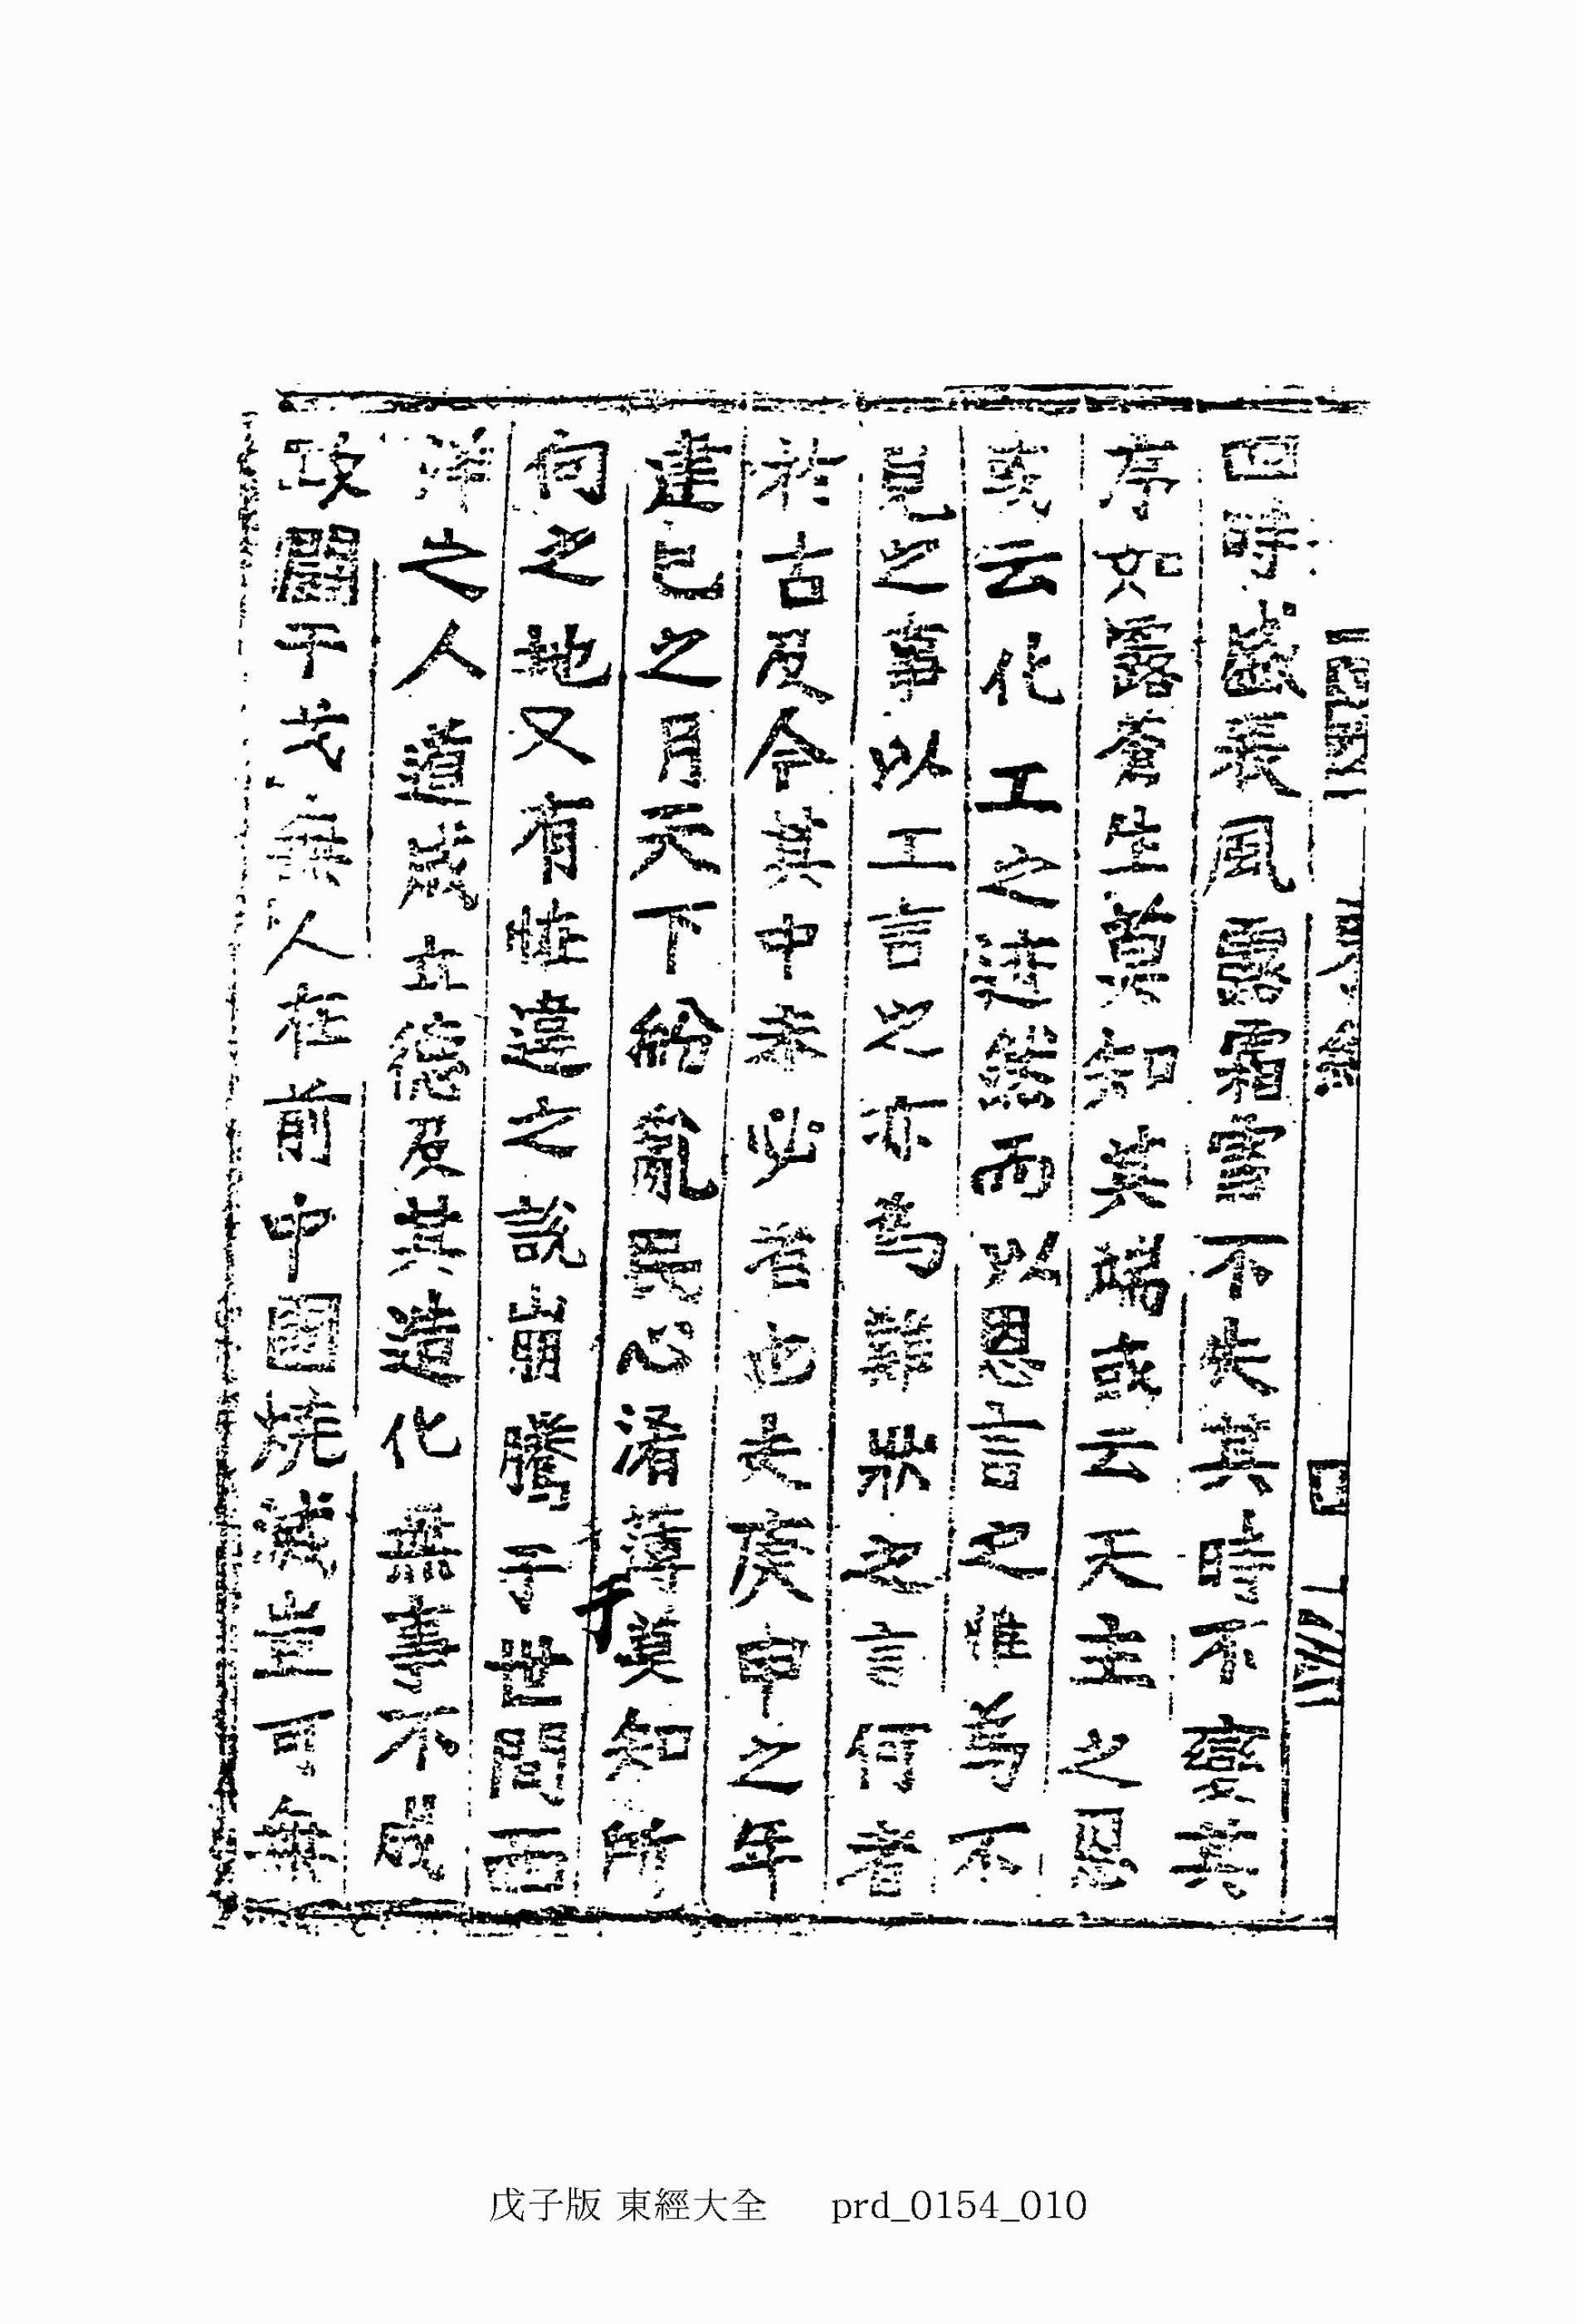 四時盛衰風露霜雪不失其時不變其
序如露蒼生莫知其端或云天主之恩
或云化工之迹然而以恩言之惟爲不
見之事以工言之亦爲難狀之言何者
於古及今其中未必者也夫庚申之年
建巳之月天下紛亂民心淆薄莫知所
向之地又有怪違之說崩騰于世間西
洋之人道成立德及其造化無事不成
攻鬪干戈無人在前中國燒滅豈可無
戊子版 東經大全 prd_0154_010